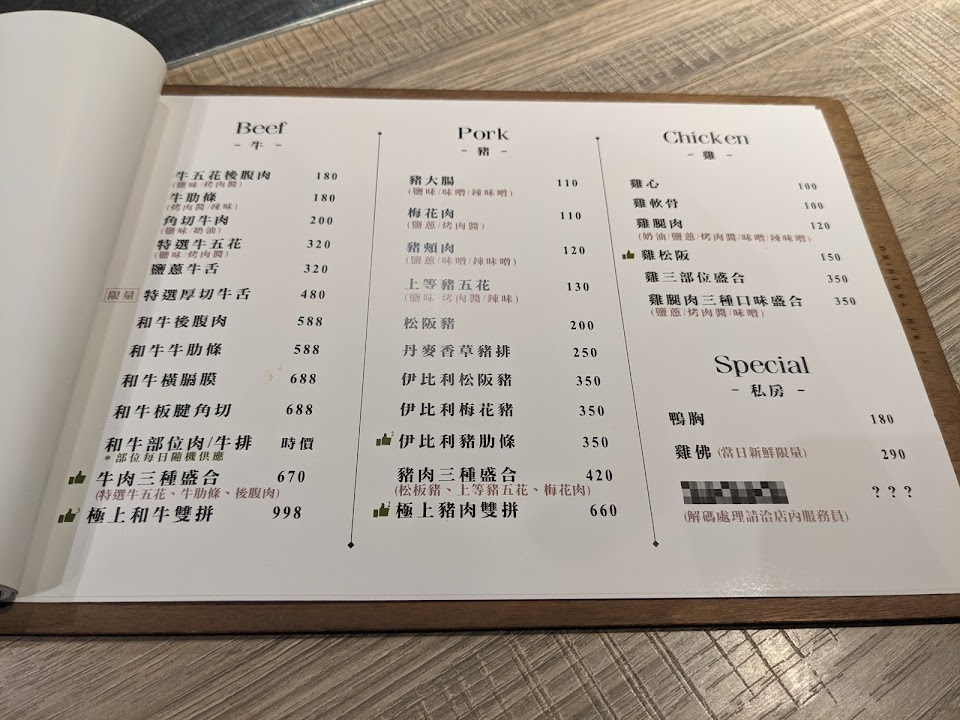 Beef
- 牛 -
牛五花後腹肉 180
(鹽味/烤肉醬)
牛肋條 180
(烤肉醬/辣味)
角切牛肉 200
(鹽味/奶油)
特選牛五花 320
(鹽味/烤肉醬)
鹽蔥牛舌 320
限量 特選厚切牛舌 480
和牛後腹肉 588
和牛牛肋條 588
和牛橫膈膜 688
和牛板腱角切 688
和牛部位肉/牛排 時價
*部位每日隨機供應
牛肉三種盛合 670
(特選牛五花、牛肋條、後腹肉)
極上和牛雙拼 998
Pork
- 豬 -
豬大腸 110
(鹽味/味噌/辣味噌)
梅花肉 110
(鹽蔥/烤肉醬)
豬頰肉 120
(鹽蔥/味噌/辣味噌)
上等豬五花 130
(鹽味/烤肉醬/辣味)
松阪豬 200
丹麥香草豬排 250
伊比利松阪豬 350
伊比利梅花豬 350
伊比利豬肋條 350
豬肉三種盛合 420
(松板豬、上等豬五花、梅花肉)
極上豬肉雙拼 660
Chicken
- 雞 -
雞心 100
雞軟骨 100
雞腿肉 120
(奶油/鹽蔥/烤肉醬/味噌/辣味噌)
雞松阪 150
雞三部位盛合 350
雞腿肉三種口味盛合 350
(鹽蔥/烤肉醬/味噌)
Special
- 私房 -
鴨胸 180
雞佛 (當日新鮮限量) 290
? ? ?
(解碼處理請洽店內服務員)